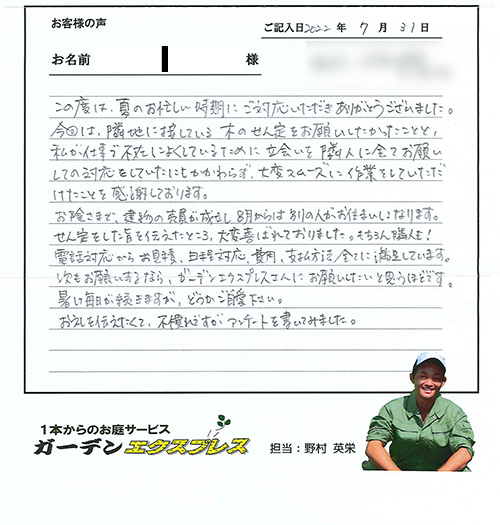 お客様の声
ご記入日 2022 年 7 月 31 日
お名前 様
この度は、夏のお忙しい時期にご対応いただきありがとうございました。
今回は、隣地に接している木のせん定をお願いしたかったことと、
私が仕事で不在にしているために立会いを隣人に全てお願い
しての対応をしていたにもかかわらず、大変スムーズに作業をしていただ
けたことを感謝しております。
お陰さまで、建物の売買が成立し8月からは別の人がお住まいになります。
せん定をした旨を伝えたところ、大変喜ばれておりました。もちろん隣人も！
電話対応からお見積、日程対応、費用、支払方法全てに満足しています。
次もお願いするなら、ガーデンエクスプレスさんにお願いしたいと思うほどです。
暑い毎日が続きますが、どうかご自愛下さい。
お礼を伝えたくて、不慣れですがアンケートを書いてみました。
1本からのお庭サービス
ガーデンエクスプレス
担当：野村 英栄